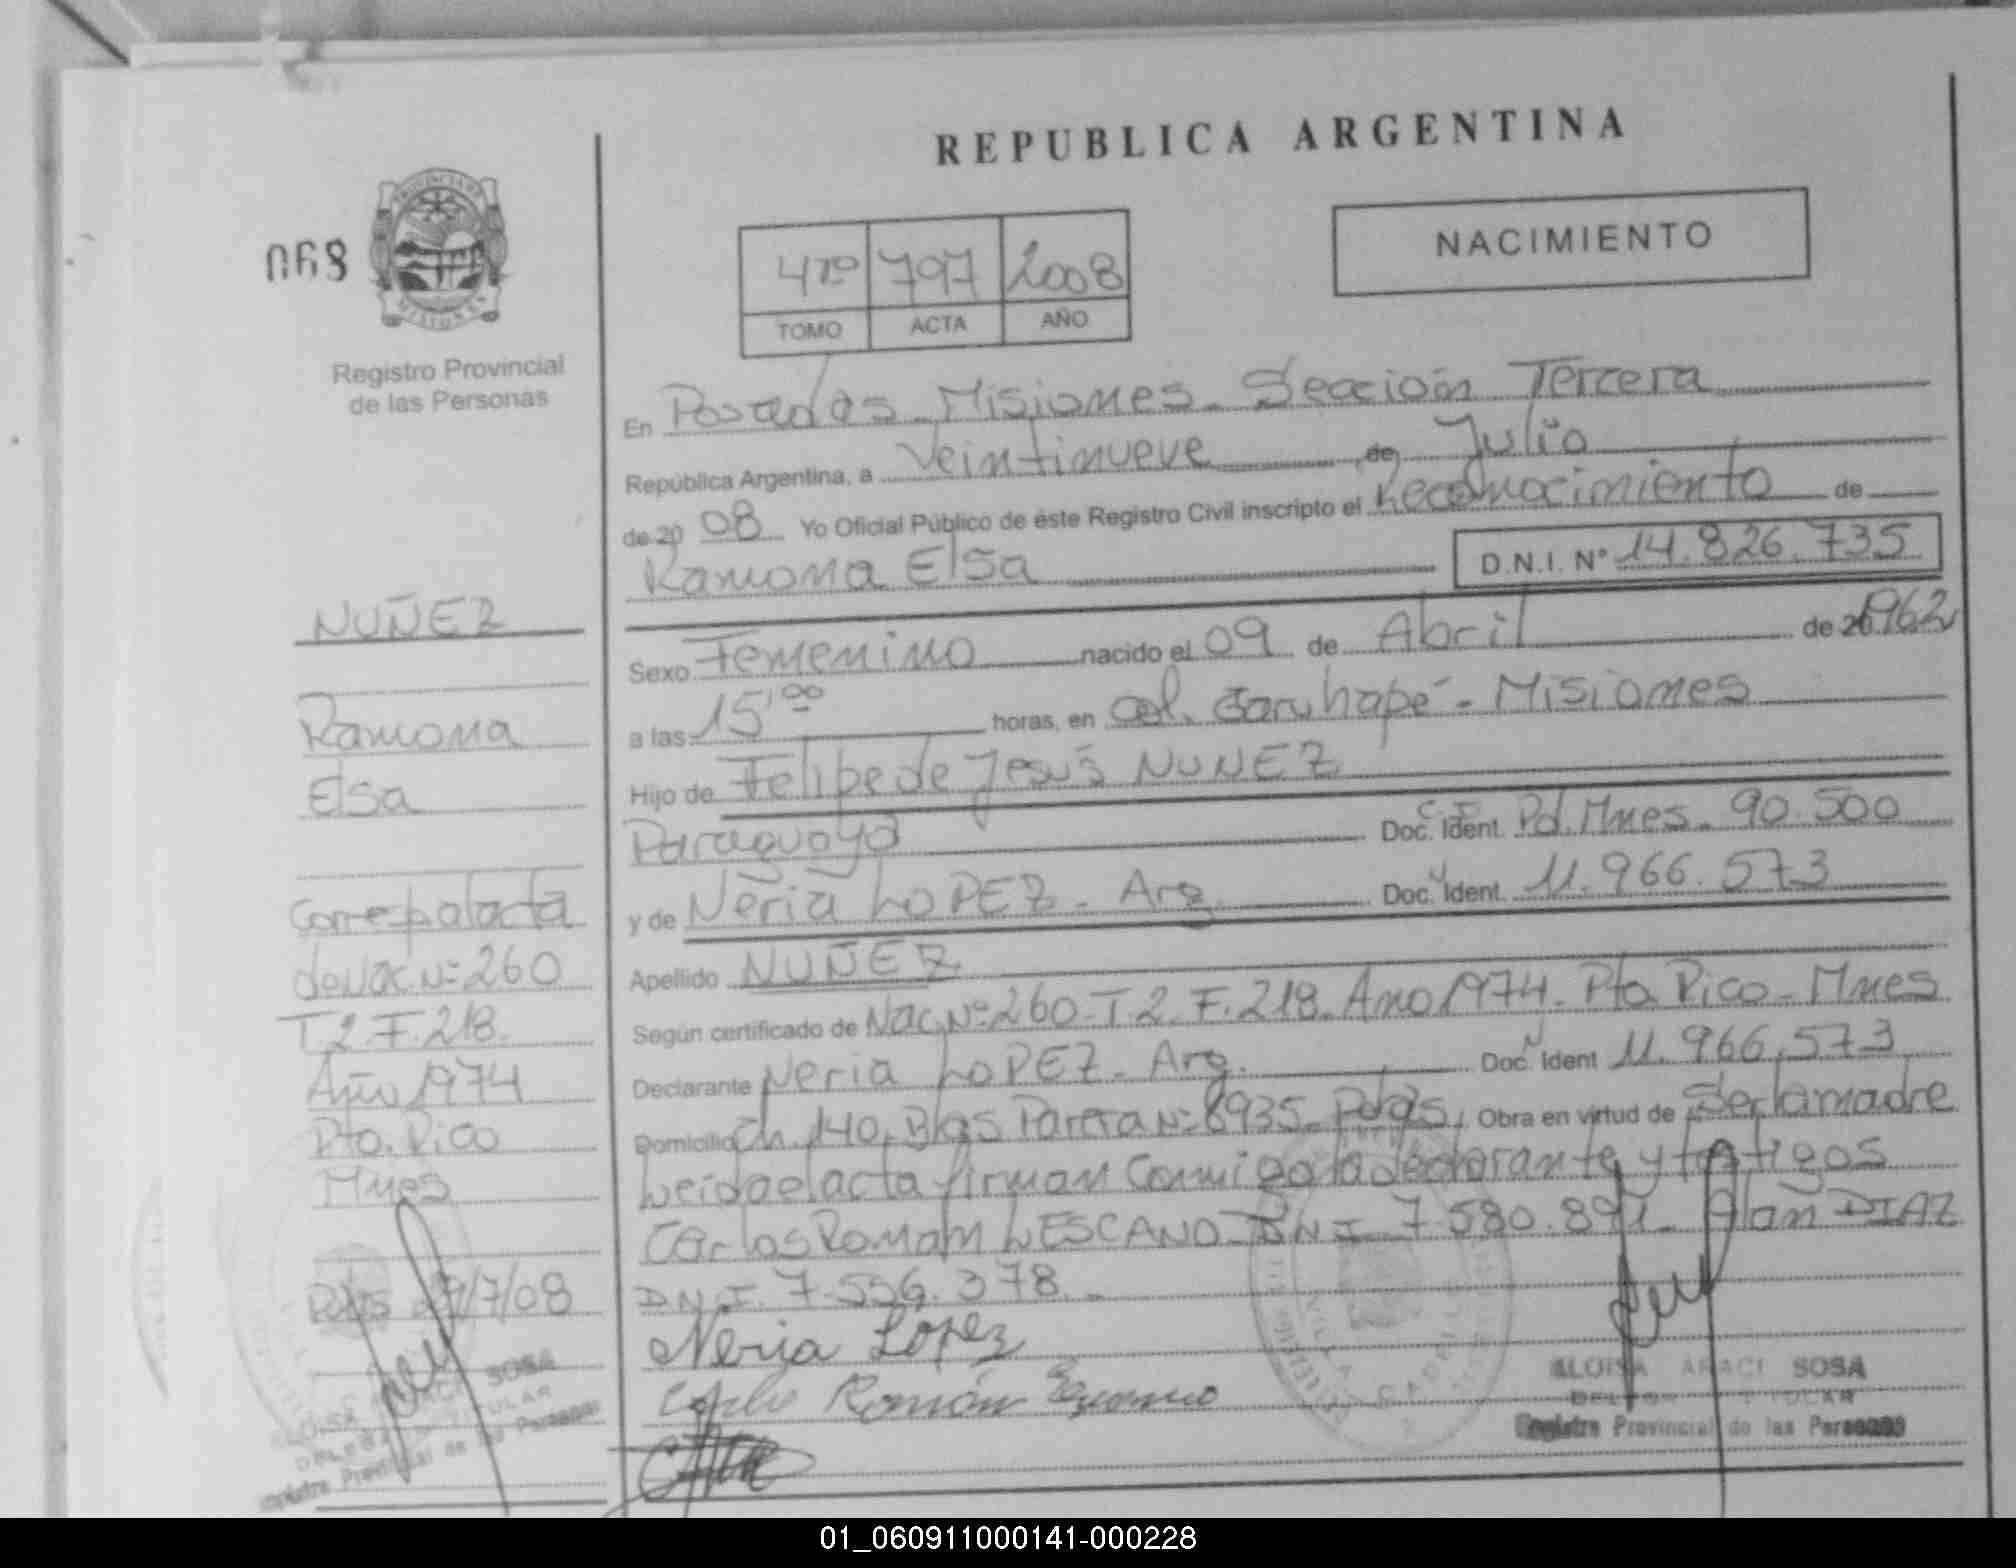 REPUBLICA ARGENTINA
NACIMIENTO
068
PROVINCIA DE
MISIONES
Registro Provincial
de las Personas
4to 797 2008
TOMO ACTA AÑO
En Posadas Misiones. Sección Tercera
República Argentina, a Veintinueve de Julio
de 2008 Yo Oficial Público de éste Registro Civil inscripto el Reconocimiento de
Ramona Elsa D.N.I. Nº 14.826.735
Sexo Femenino nacido el 09 de Abril de 1962
a las 15,00 horas, en Col. Garuhapé - Misiones
Hijo de Felipe de Jesús NUÑEZ
Paraguayo Doc. Ident. C.I. Pol. Mnes. 90.500
y de Neria LOPEZ - Arg. Doc. Ident. 11.966.573
Apellido NUÑEZ
Según certificado de Nac. Nº 260-T.2.F.218. Año 1974- Pto. Rico - Mnes
Declarante Neria LOPEZ - Arg. Doc. Ident 11.966.573
Domicilio Ch. 140, Blas Parera Nº 8935- Pdas, Obra en virtud de Ser la madre
Leida el acta firman Conmigo la declarante y testigos
Carlos Roman LESCANO D.N.I 7.580.891- Alan DIAZ
D.N.I. 7.556.378.-
Neria Lopez
Román
ALOISA ARACI SOSA
TITULAR
Registro Provincial de las Personas
NUÑEZ
Ramona
Elsa
Corresp al acta
de Nac. Nº 260
T.2.F.218.
Año 1974
Pto. Rico
Mnes
Pdas 29/7/08
ALOISA ARACI SOSA
TITULAR
Registro Provincial de las Personas
01_060911000141-000228